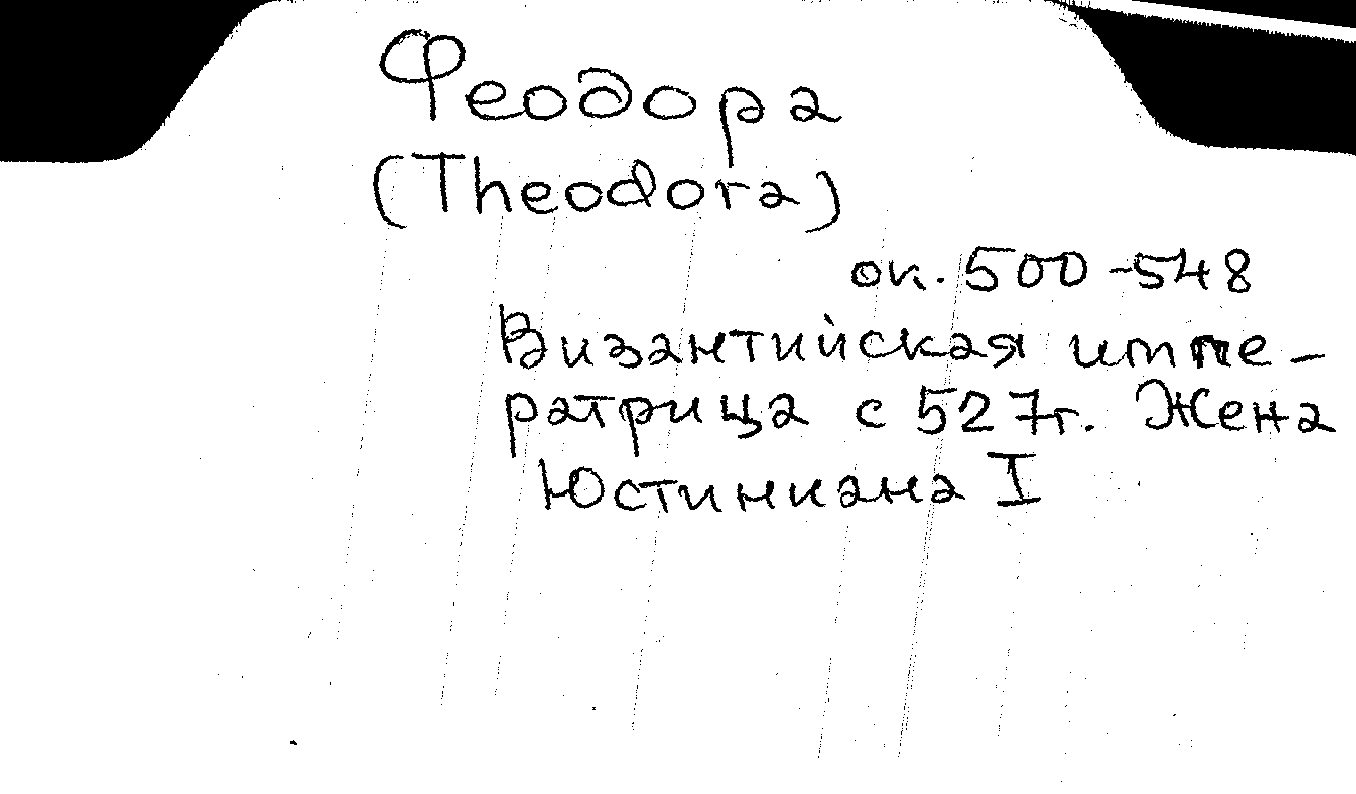 Феодора
(Theodora)
ок. 500-548
Византийская импе-
ратрица с 527г. Жена
Юстиниана I